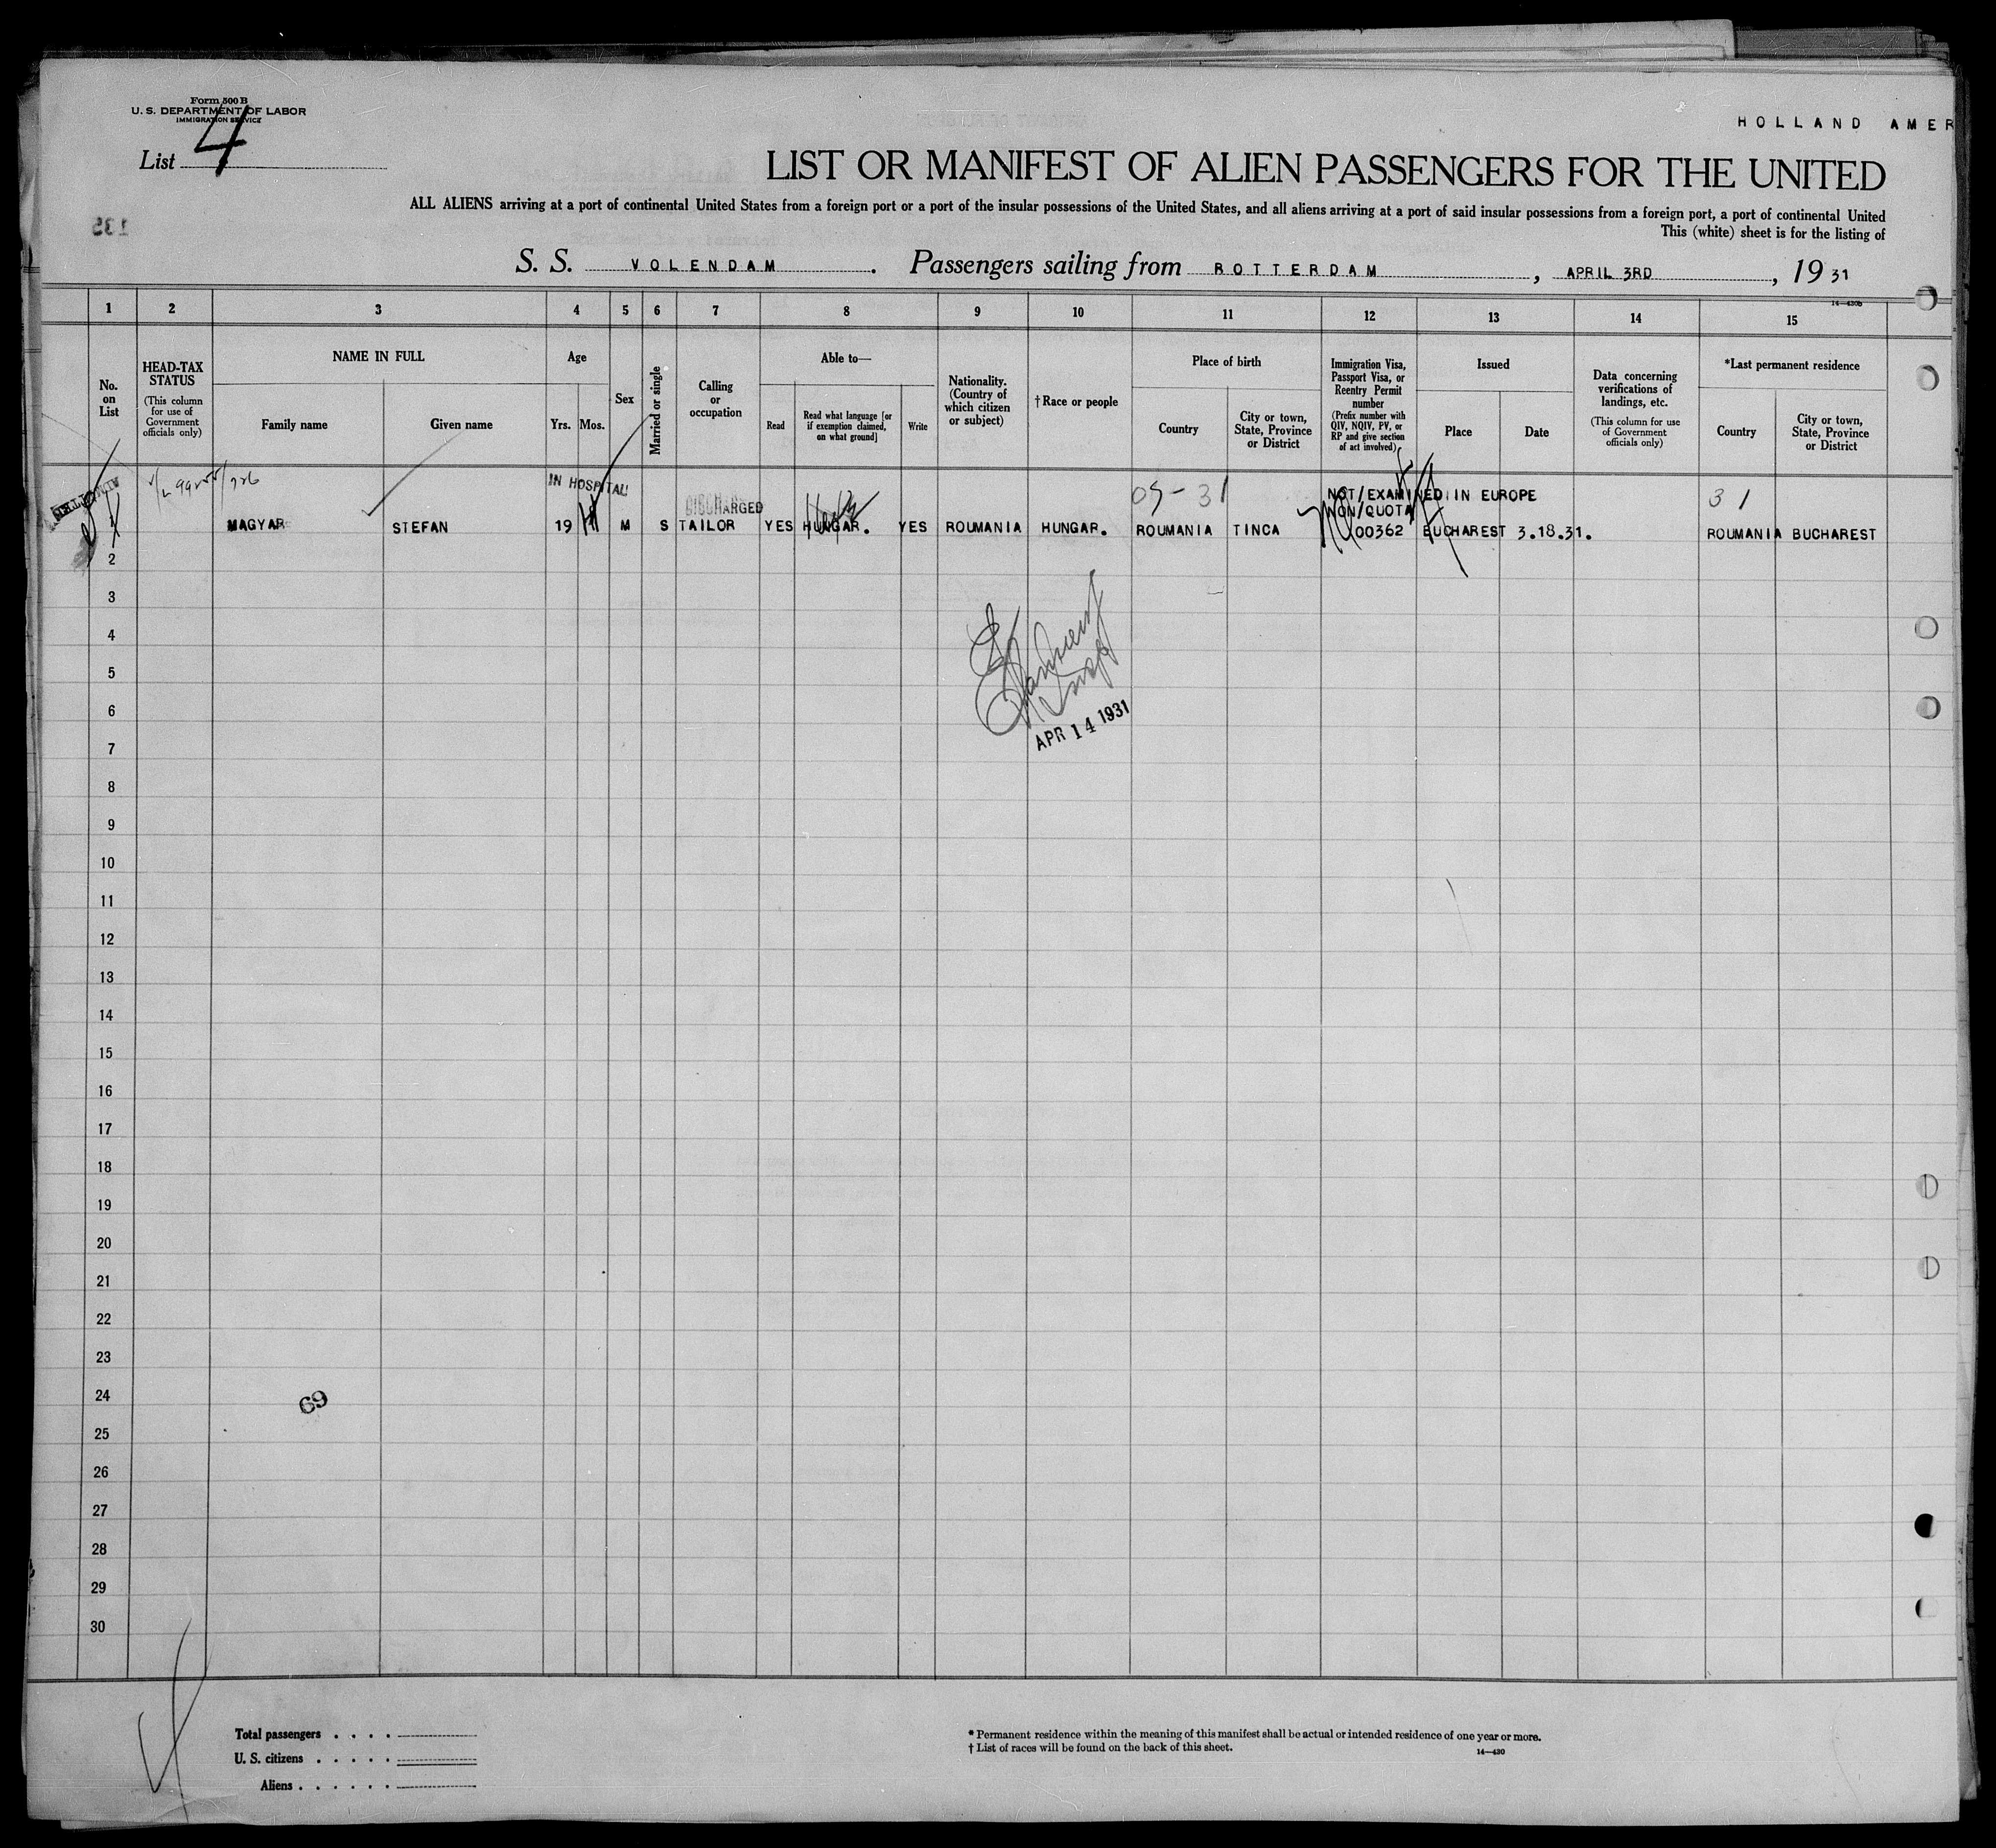 Form 500 B
U. S. DEPARTMENT OF LABOR
IMMIGRATION SERVICE
HOLLAND AMER
List 4
LIST OR MANIFEST OF ALIEN PASSENGERS FOR THE UNITED
ALL ALIENS arriving at a port of continental United States from a foreign port or a port of the insular possessions of the United States, and all aliens arriving at a port of said insular possessions from a foreign port, a port of continental United
135
This (white) sheet is for the listing of
S. S. VOLENDAM. Passengers sailing from ROTTERDAM, APRIL 3RD, 1931
14—430b
1 2 3 4 5 6 7 8 9 10 11 12 13 14 15
No. on List
HEAD-TAX STATUS
(This column for use of Government officials only)
NAME IN FULL
Family name
Given name
Age
Yrs.
Mos.
Sex
Married or single
Calling or occupation
Able to—
Read
Read what language [or if exemption claimed, on what ground]
Write
Nationality. (Country of which citizen or subject)
† Race or people
Place of birth
Country
City or town, State, Province or District
Immigration Visa, Passport Visa, or Reentry Permit number
(Prefix number with QIV, NQIV, PV, or RP and give section of act involved)
Issued
Place
Date
Data concerning verifications of landings, etc.
(This column for use of Government officials only)
*Last permanent residence
Country
City or town, State, Province or District
IN HOSPITAL
DISCHARGED
09-31
NOT/EXAMINED IN EUROPE
31
NON/QUOTA
1 MAGYAR STEFAN 19 M S TAILOR YES HUNGAR. YES ROUMANIA HUNGAR. ROUMANIA TINCA 00362 BUCHAREST 3.18.31. ROUMANIA BUCHAREST
2
3
4
5
6
APR 14 1931
7
8
9
10
11
12
13
14
15
16
17
18
19
20
21
22
23
24
69
25
26
27
28
29
30
Total passengers . . . .
U. S. citizens . . . . .
Aliens . . . . . .
* Permanent residence within the meaning of this manifest shall be actual or intended residence of one year or more.
† List of races will be found on the back of this sheet.
14—430